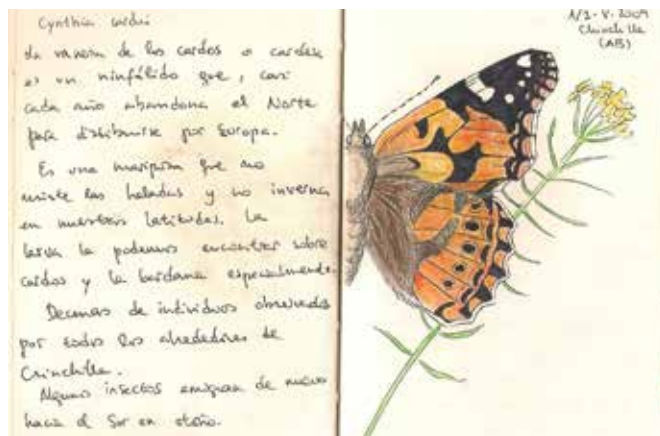 Cynthia cardui
La vanesa de los cardos o cardera
es un ninfálido que, casi
cada año abandona el Norte
para distribuirse por Europa.
Es una mariposa que no
resiste las heladas y no inverna
en nuestras latitudes. La
larva la podemos encontrar sobre
cardos y la bardana especialmente.
Decenas de individuos observados
por todos los alrededores de
Chinchilla.
Algunos insectos emigran de nuevo
hacia el Sur en otoño.
1/2-V-2009
Chinchilla
(AB)